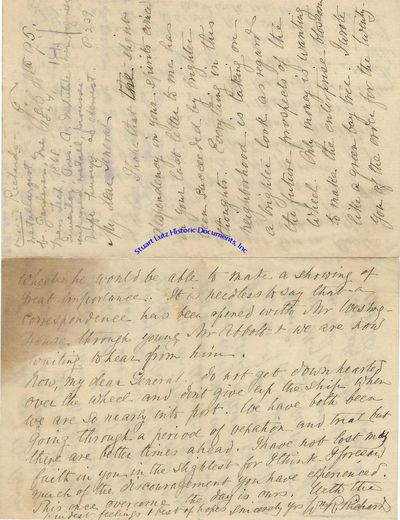 My dear General
I hope that the slight
despondency in your spirits since
your last letter to me has
been succeeded by brighter
thoughts. Everything in this
neighborhood is taking on
a brighter look as regard
the future prospects of the
Wheel. Only money is wanting
to make the enterprise blossom
like a green bay tree. I wrote
you of the order for the twenty
Stuart Lutz Historic Documents, Inc
wheels he would be able to make a showing of
great importance. It is needless to say that a
correspondence has been opened with Mr Westing-
house through young Mr Abbott & we are now
waiting to hear from him.
Now, my dear General, do not get down hearted
over the wheel and don't give up the ship when
we are so nearly into port. We have both been
going through a period of vexation and trial but
there are better times ahead. I have not lost my
faith in you in the slightest for I think I foresaw
much of the discouragement you have experienced.
This once overcome the day is ours. With the
kindest feelings & best of hopes Sincerely yrs Richards